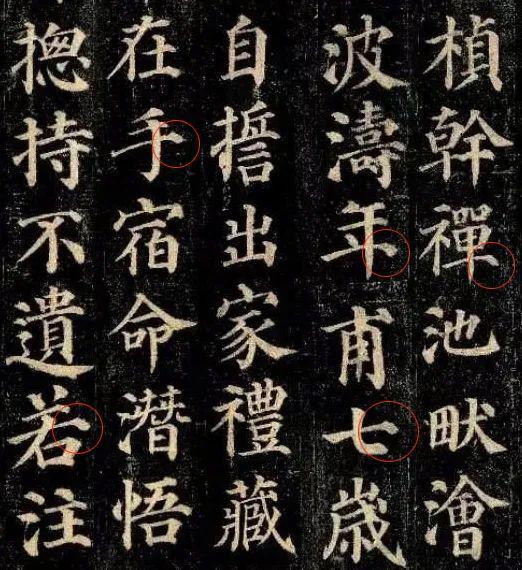 楨幹禪池畎澮
波濤年甫七歲
自誓出家禮藏
在手宿命潛悟
摠持不遺若注